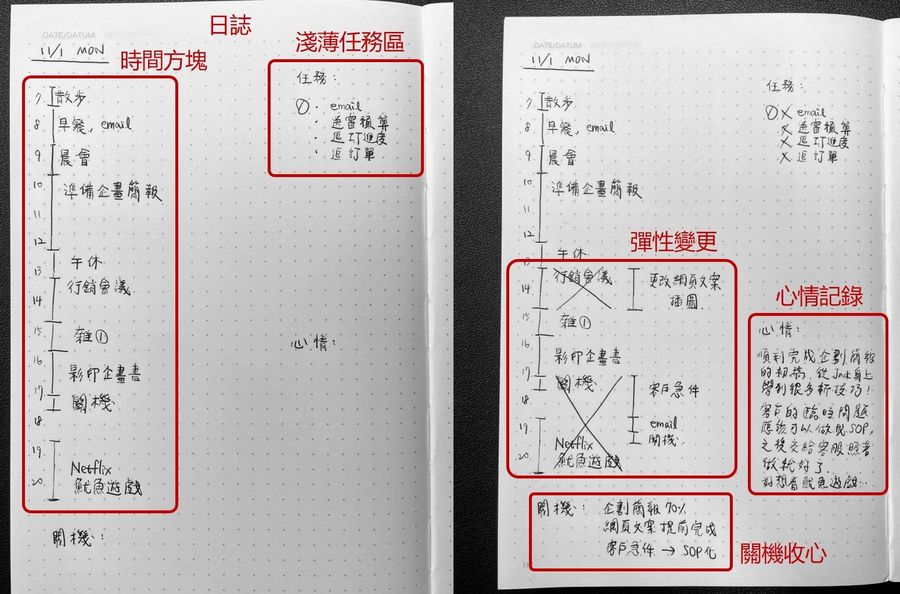 日誌
DATE/DATUM:
11/1 MON
時間方塊
淺薄任務區
任務:
① · email
· 送審預算
· 追IT進度
· 追訂單
7. 散步
8. 早餐, email
9. 晨會
10. 準備企畫簡報
11.
12.
13. 午休
14. 行銷會議
15. 雜①
16. 影印企畫書
17. 關機
18.
19.
20. Netflix
魷魚遊戲
心情:
關機:
DATE/DATUM:
11/1 MON
任務:
① X email
X 送審預算
X 追IT進度
X 追訂單
7. 散步
8. 早餐, email
9. 晨會
10. 準備企畫簡報
11.
12.
13. 午休
彈性變更
14. 行銷會議 更改網頁文案
插圖
15. 雜①
16. 影印企畫書
17. 關機 客戶急件
18. email
19. 關機
20. Netflix
魷魚遊戲
心情記錄
心情:
順利完成企劃簡報
的初稿, 從Jack身上
學到很多新技巧!
客戶的臨時問題
應該可以做成SOP,
之後交給客服照著
做就好了.
好想看魷魚遊戲…
關機: 企劃簡報70%
網頁文案提前完成
客戶急件 → SOP化
關機收心